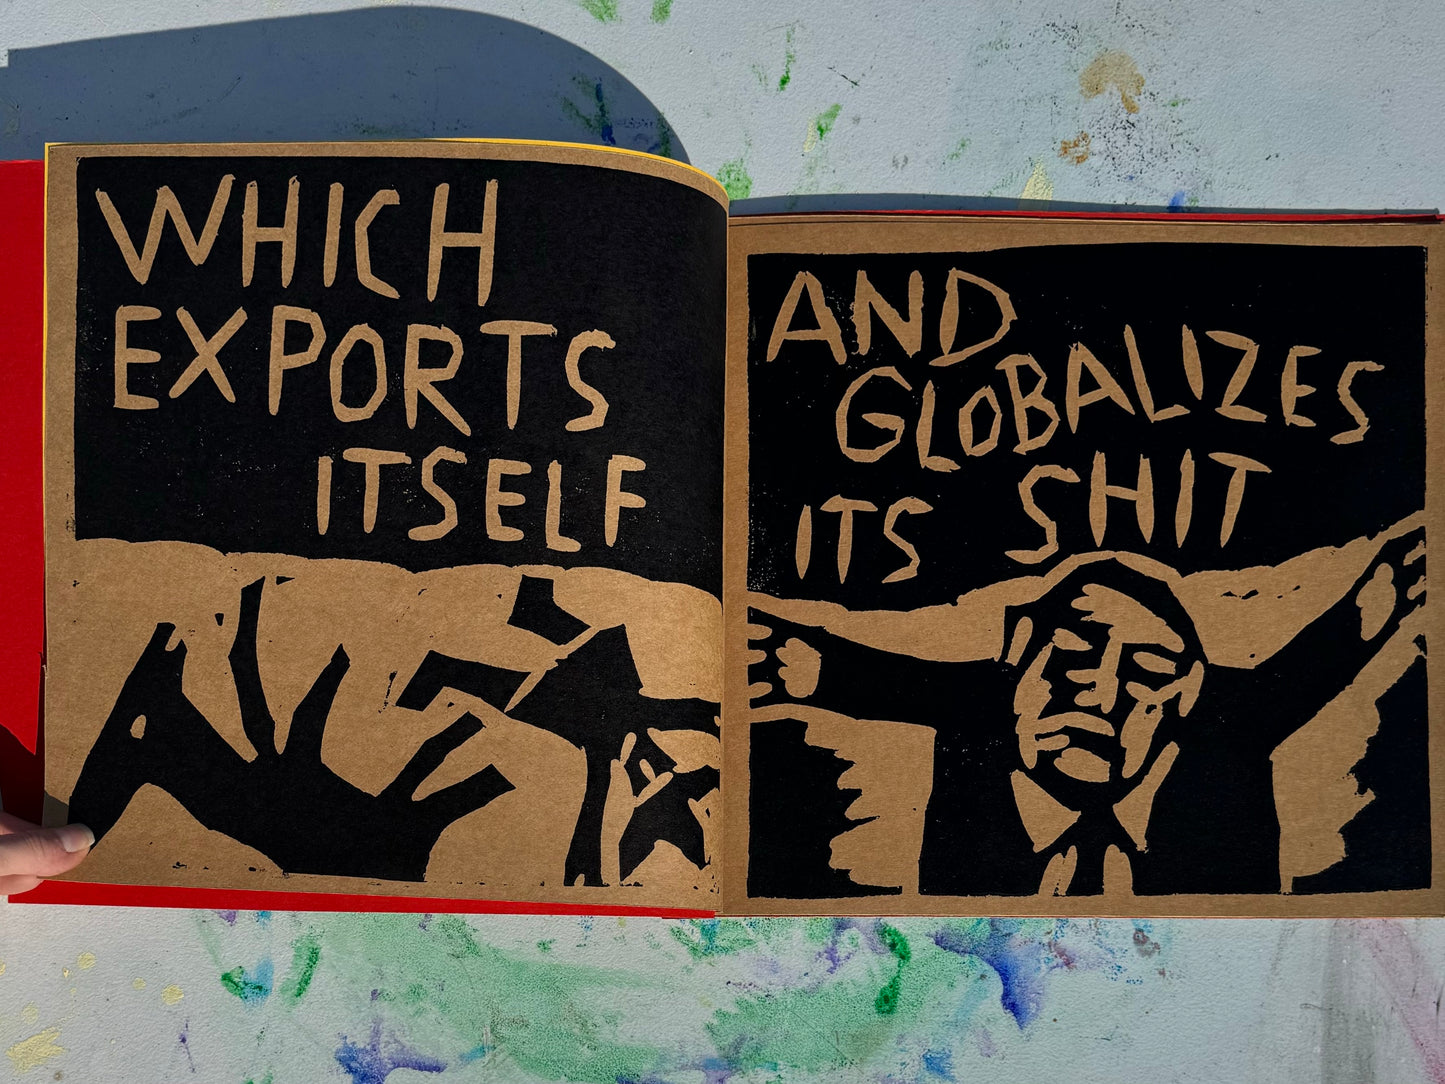 WHICH
EXPORTS
ITSELF
AND
GLOBALIZES
ITS SHIT